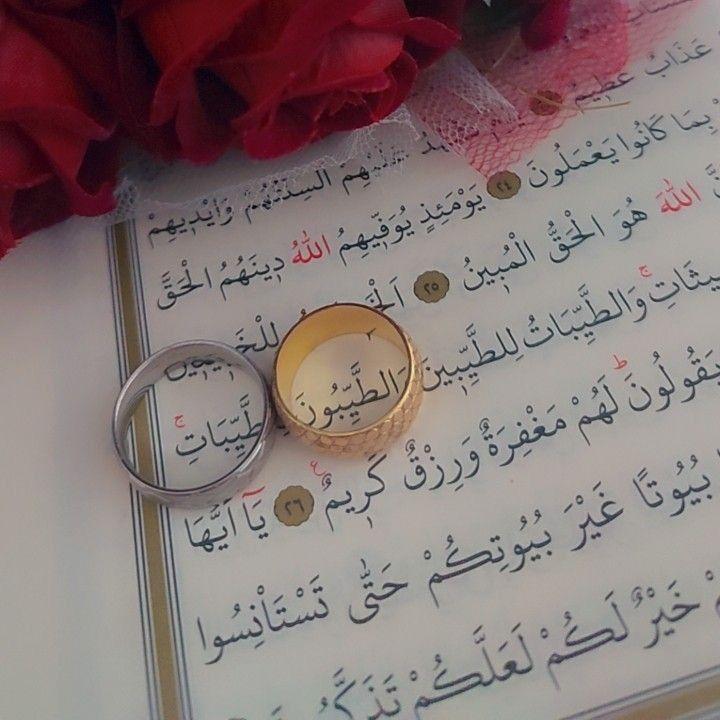 عَذَابٌ عَظ۪يمٌ عَلَيْهِمْ اَلْسِنَتُهُمْ وَاَيْد۪يهِمْ
بِمَا كَانُوا يَعْمَلُونَ ٢٤ يَوْمَئِذٍ يُوَفّ۪يهِمُ اللّٰهُ د۪ينَهُمُ الْحَقَّ
اللّٰهَ هُوَ الْحَقُّ الْمُب۪ينُ ٢٥
وَالطَّيِّبَاتُ لِلطَّيِّب۪ينَ وَالطَّيِّبُونَ لِلطَّيِّبَاتِۚ
يَقُولُونَۜ لَهُمْ مَغْفِرَةٌ وَرِزْقٌ كَر۪يمٌ ٢٦ يَٓا اَيُّهَا
بُيُوتًا غَيْرَ بُيُوتِكُمْ حَتّٰى تَسْتَأْنِسُوا
خَيْرٌ لَكُمْ لَعَلَّكُمْ تَذَكَّرُونَ